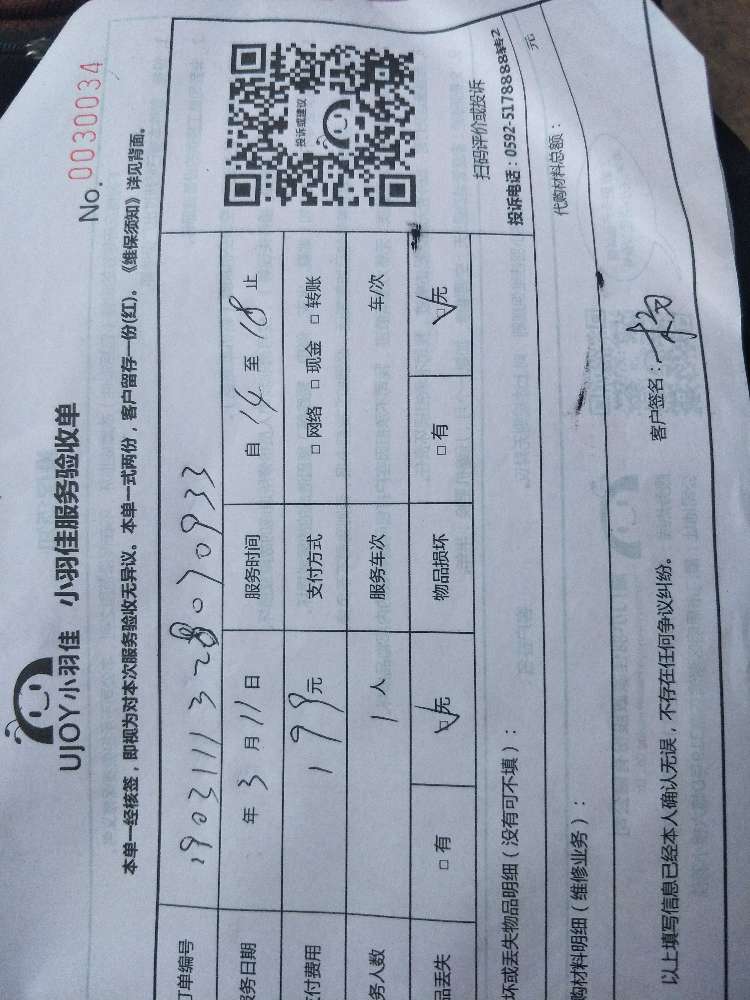 UJOY小羽佳 小羽佳服务验收单
No. 0030034
本单一经核签，即视为对本次服务验收无异议。本单一式两份，客户留存一份(红)。《维保须知》详见背面。
订单编号 1903111328070933
服务日期 年 3 月 11 日 服务时间 自 14 至 18 止
支付费用 199 元 支付方式 □ 网络 □ 现金 □ 转账
服务人数 1 人 服务车次 车/次
物品丢失 □ 有 □ 无 物品损坏 □ 有 □ 无
投诉或建议
扫码评价或投诉
投诉电话：0592-5178888转2
坏或丢失物品明细（没有可不填）：
购材料明细（维修业务）： 代购材料总额： 元
以上填写信息已经本人确认无误，不存在任何争议纠纷。 客户签名：杨